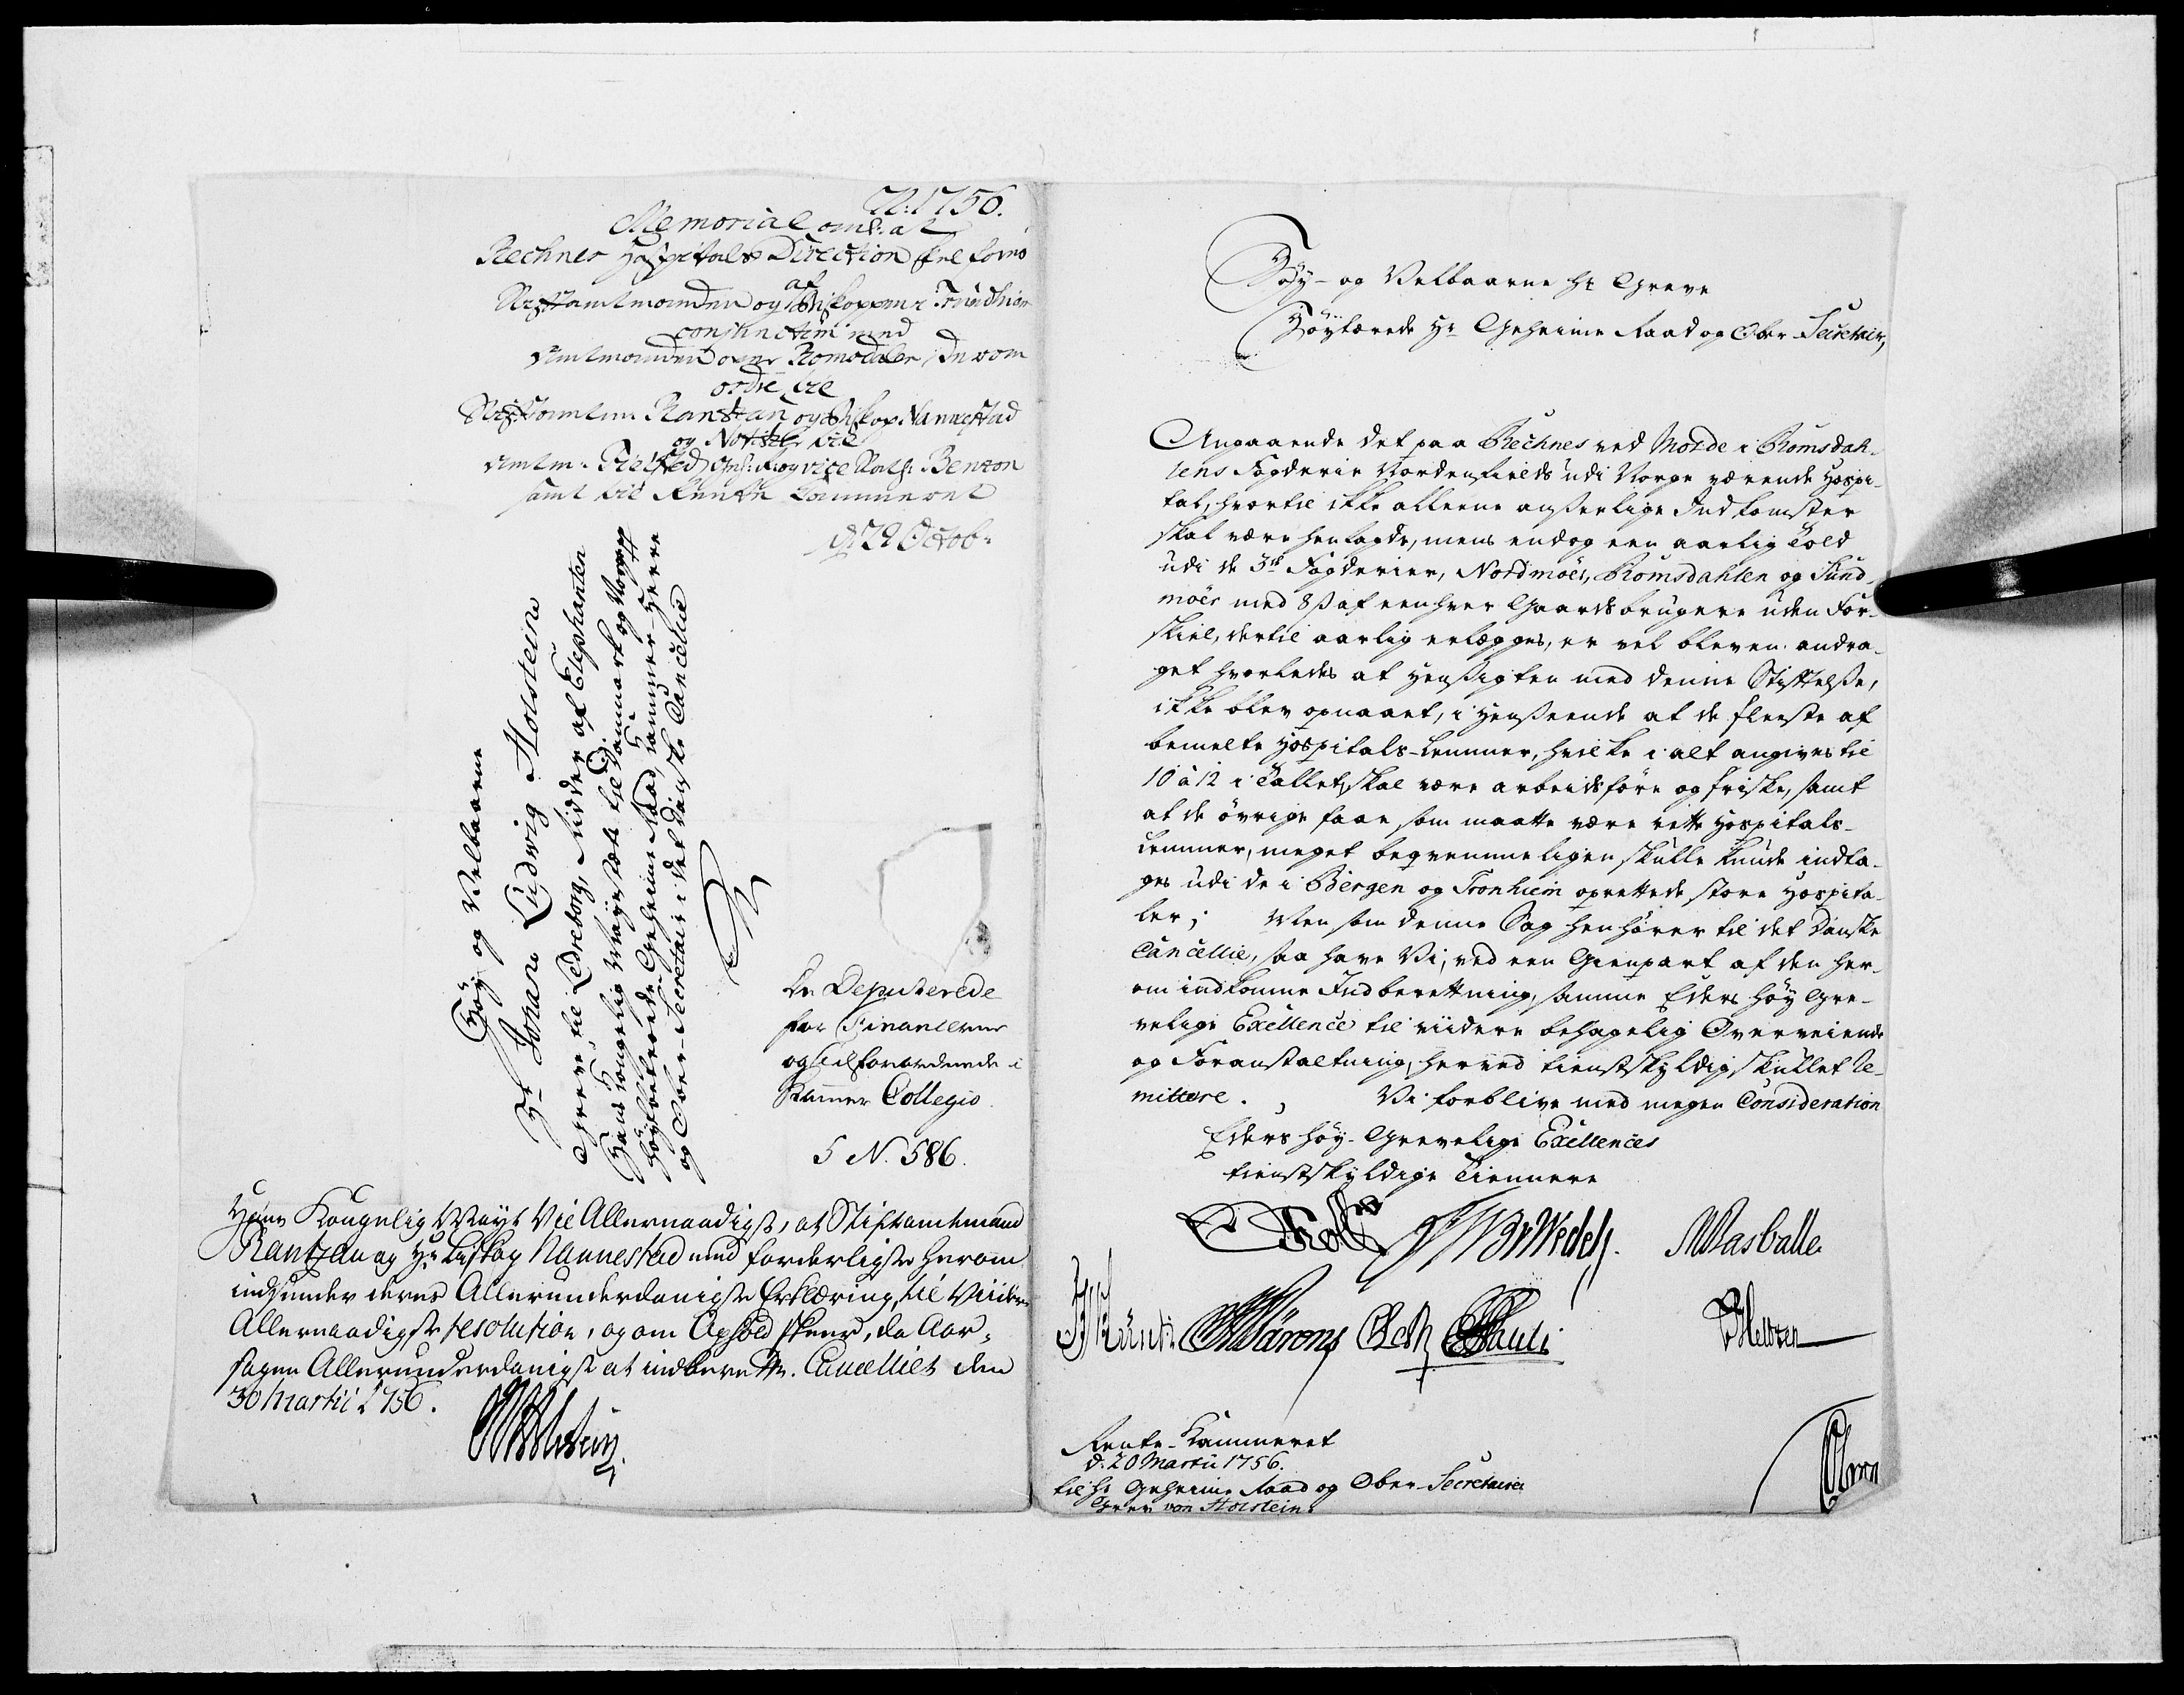 N: 1756.
Memorial anl: at
Rechnes Hospitals Direction skal føres
af
Stiftamtmanden og Biskoppen i Trundhiem
conjunctim med
Amtmanden over Romsdalen, derom
ordre til
Stiftamtm: Rantzau og Biskop Nannestad
og Notitz til
samt til Rente Cammeret
d: 29 Octob:
Høy og Velbaarne
Hr Johan Ludvig Holstein
Greve til Ledreborg, Ridder af Elephanten
Hans Kongelig Mayestæt til Danmark og Norge
Høybetroede Geheime Raad, Cammer-Herre
og Ober-Secretair i det Danske Cancellie
De Deputerede
for Finantzerne
og tilforordnede i
Kammer Collegio.
5 N. 586.
Hans Kongelig Mayt Vil Allernaadigst, at Stiftamtmand
Rantzau og Hr Biskop Nannestad med forderligste herom
indsender deres Allerunderdanigste Erklæring, til Viidere
Allernaadigste resolution, og om Ophold skeer, da Aar-
sagen Allerunderdanigst at indberette. Cancelliet den
30 Martii 1756.
JLHolstein
Høy- og Velbaarne Hr Greve
Høytærede Hr Geheime Raad og Ober Secretair,
Angaaende det paa Rechnes ved Molde i Romsdah-
lens Fogderie Nordenfields udi Norge værende Hospi-
tal, hvortil ikke alleene anseelige Indkomster
skal være henlagde, mens endog een aarlig Told
udi de 3de Fogderier, Nordmöer, Romsdahlen og Sund-
möer med 8 ß af een hver Gaardsbrugere uden For-
skiel, dertil aarlig erlægges, er vel bleven andra-
get hvorledes at Hensigten med denne Stiftelse,
ikke blev opnaaet, i Henseende at de fleeste af
bemelte Hospitals-Lemmer, hvilke i alt angives til
10 à 12 i Tallet, skal være arbeidsföre og friske, samt
at de övrige faae, som maatte være rette Hospitals-
Lemmer, meget beqvemmeligen skulle kunde indta-
ges udi de i Bergen og Tronhiem oprettede store Hospita-
ler; Men som denne Sag henhörer til det Danske
Cancellie, saa have Vi, ved een Gienpart af den her-
om indkomne Indberettning, samme Eders Höy Gre-
velige Excellence til viidere behagelig Overveiende
og Foranstaltning, herved tienstskyldig skullet re-
mittere. Vi forblive med megen Consideration
Eders Höy-Grevelige Excellences
tienstskyldige Tiennere
Rente-Kammeret
d. 20 Martii 1756.
til Hr Geheime Raad og Ober-Secretaire
Grev von Holstein